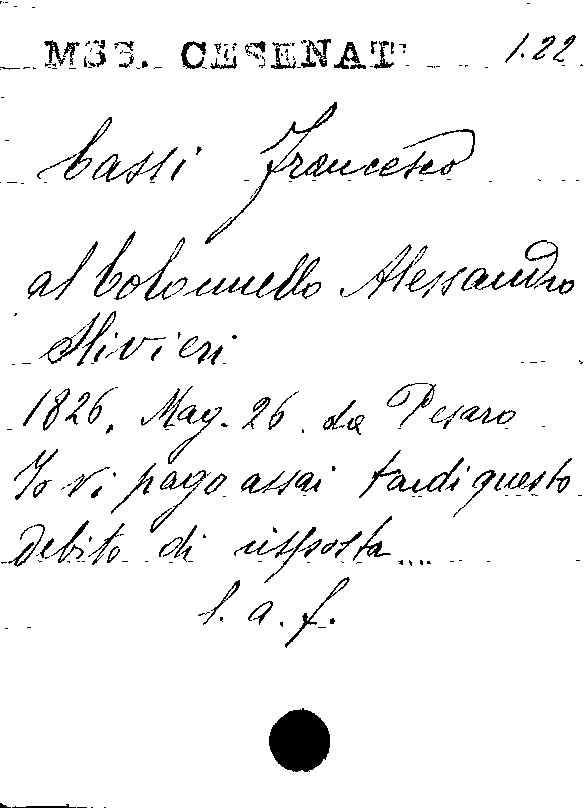 MSS. CESENATI 1.22
Cassi Francesco
al Colonnello Alessandro
Olivieri
1826, Mag. 26. da Pesaro
Io vi pago assai tardi questo
debito di risposta....
l. a. f.